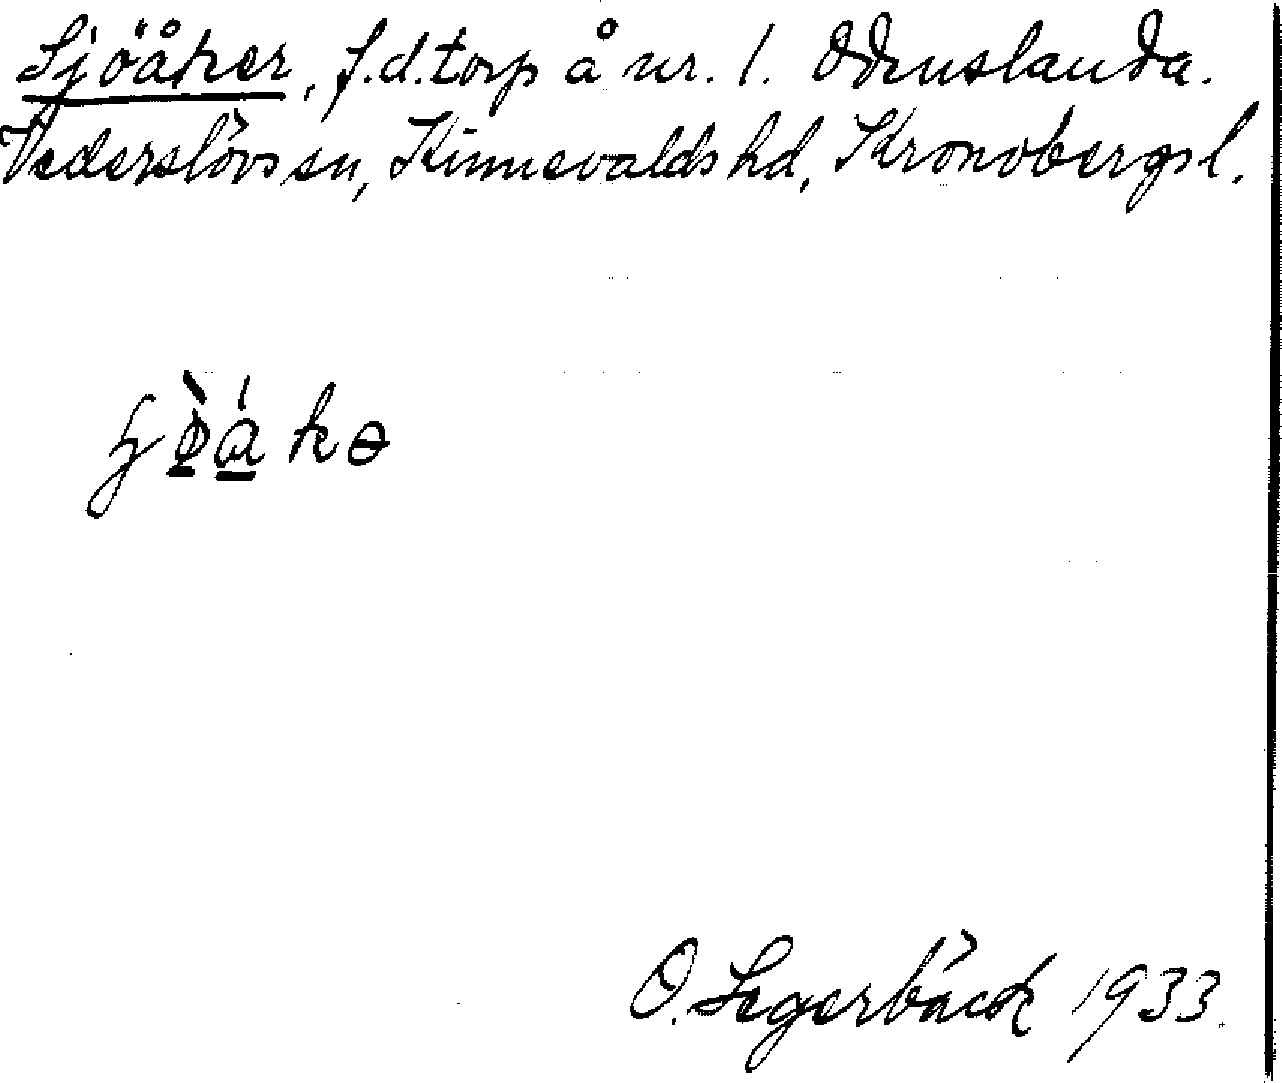 Sjöåker, f.d. torp å nr. 1. Odenslanda.
Vederslövs sn, Kinnevalds hd, Kronobergs l.
O. Segerbäck 1933.